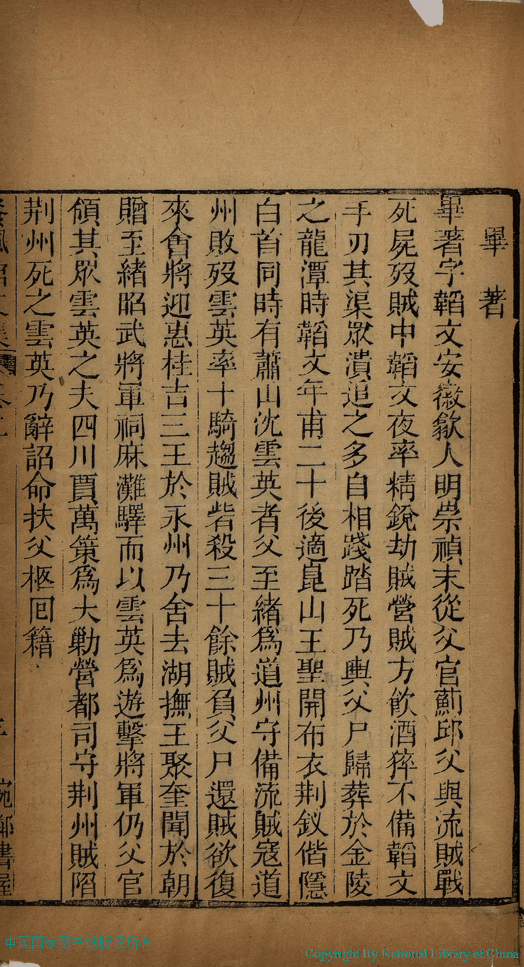 畢著
畢著字韜文安徽歙人明崇禎末從父官薊邱父與流賊戰
死屍歿賊中韜文夜率精銳劫賊營賊方飲酒猝不備韜文
手刃其渠眾潰追之多自相踐踏死乃輿父尸歸葬於金陵
之龍潭時韜文年甫二十後適崑山王聖開布衣荆釵偕隱
白首同時有蕭山沈雲英者父至緒爲道州守備流賊寇道
州敗歿雲英率十騎趨賊砦殺三十餘賊負父尸還賊欲復
來會將迎惠桂吉三王於永州乃舍去湖撫王聚奎聞於朝
贈至緒昭武將軍祠麻灘驛而以雲英爲遊擊將軍仍父官
領其眾雲英之夫四川賈萬策爲大勦營都司守荆州賊陷
荆州死之雲英乃辭詔命扶父柩回籍
書屋
Copyright By National Library of China